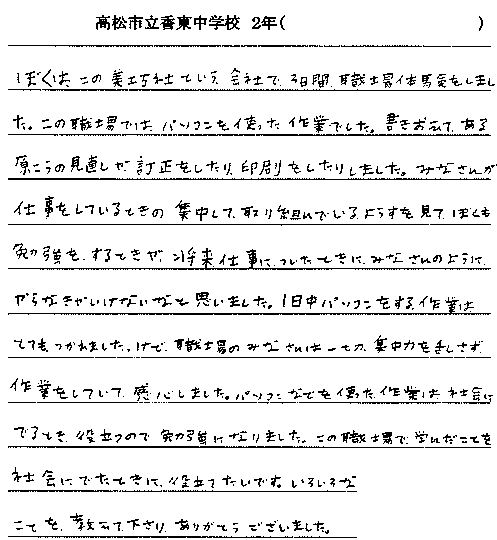 高松市立香東中学校 2年( )
ぼくは、この美巧社という会社で、3日間、職場体験をしまし
た。この職場では、パソコンを使った作業でした。書きおえてある
原こうの見直しや訂正をしたり、印刷をしたりしました。みなさんが
仕事をしているときの集中して、取り組んでいるようすを見て、ぼくも
勉強を、するときや、将来仕事に、ついたときに、みなさんのように、
がんばらなきゃいけないなと思いました。1日中パソコンをする、作業は、
とても、つかれました。けど、職場のみなさんは、集中力をきらさず、
作業をしていて、感心しました。パソコンなどを使った、作業は、社会に
でるとき、役立つので、勉強になりました。この職場で、学んだことを
社会にでたときに、役立てたいです。いろいろな
ことを、教えて下さり、ありがとうございました。